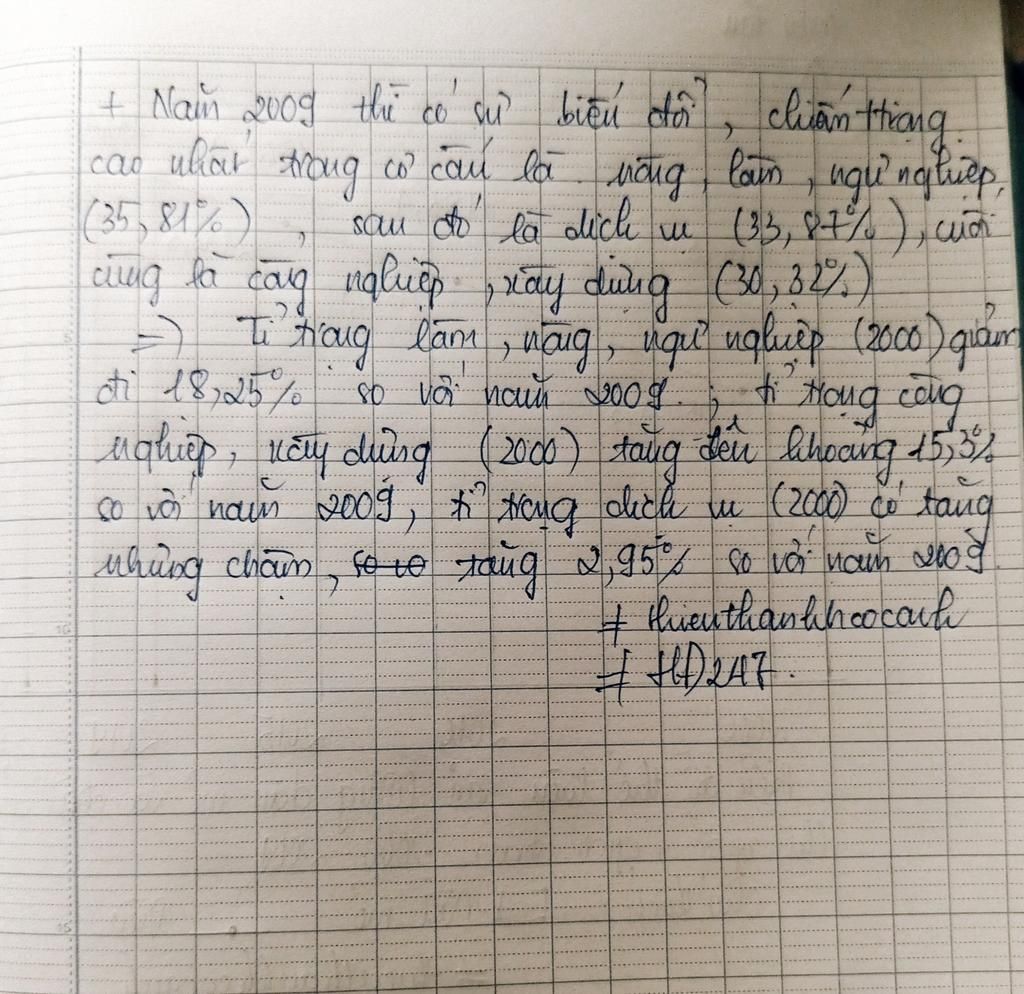 + Năm 2009 thì có sự biến đổi, chiếm trọng
cao nhất trong cơ cấu là nông, lâm, ngư nghiệp,
(35,81%), sau đó là dịch vụ (33,87%), cuối
cùng là công nghiệp, xây dựng (30,32%)
=> Tỉ trọng lâm, nông, ngư nghiệp (2000) giảm
đi 18,25% so với năm 2009; tỉ trọng công
nghiệp, xây dựng (2000) tăng đến khoảng 15,3%
so với năm 2009, tỉ trọng dịch vụ (2000) có tăng
nhưng chậm, so vo tăng 2,95% so với năm 2009.
# thieuthanhhoocach
# HĐ247.